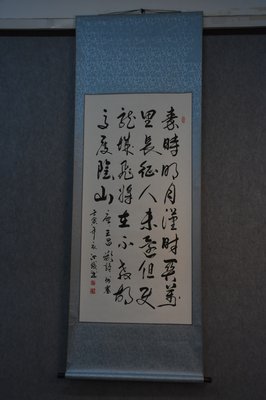 秦時明月漢時関萬
里長征人未還但使
龍城飛將在不教胡
馬度陰山
唐王昌齡詩出塞